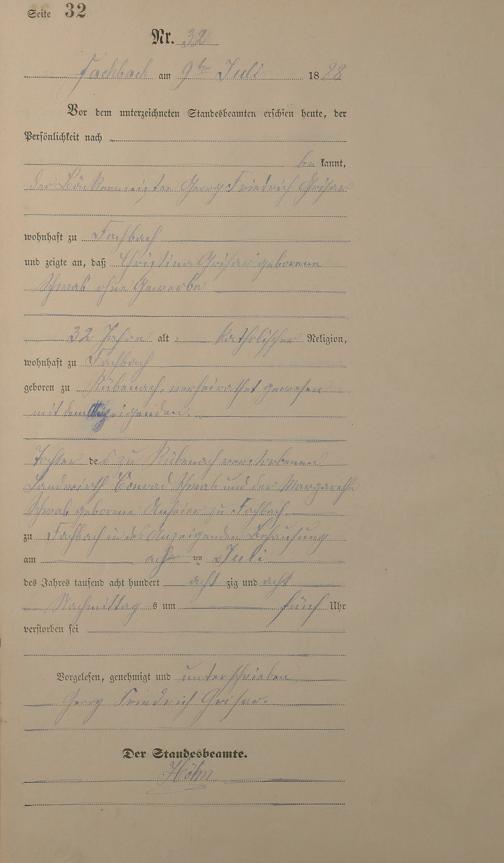 Seite 32
Nr. 32
Fachbach am 9ten Juli 1888
Vor dem unterzeichneten Standesbeamten erschien heute, der
Persönlichkeit nach
be kannt,
der Bäckermeister Georg Friedrich
wohnhaft zu Fachbach
und zeigte an, daß Christina geborene
Schwab ohne Gewerbe
32 Jahre alt, katholischer Religion,
wohnhaft zu Fachbach
geboren zu Rübenach, verheirathet gewesen
mit dem Anzeigenden.
Tochter des zu Rübenach verstorbenen
Landwirth Conrad Schwab und der Margaretha
Schwab geborne zu Fachbach.
zu Fachbach in des Anzeigenden Behausung
am acht ten Juli
des Jahres tausend acht hundert acht zig und acht
Nachmittag s um fünf Uhr
verstorben sei
Vorgelesen, genehmigt und unterschrieben
Georg Friedrich
Der Standesbeamte.
Höhn